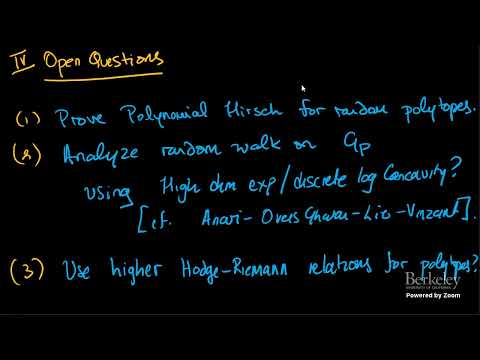 IV Open Questions
(1) Prove Polynomial Hirsch for random polytopes.
(2) Analyze random walk on Gp
using High dim exp/discrete log Concavity?
[cf. Anari-Oveis Gharan-Liu-Vinzant].
(3) Use higher Hodge-Riemann relations for polytopes?
Berkeley
UNIVERSITY OF CALIFORNIA
Powered by Zoom